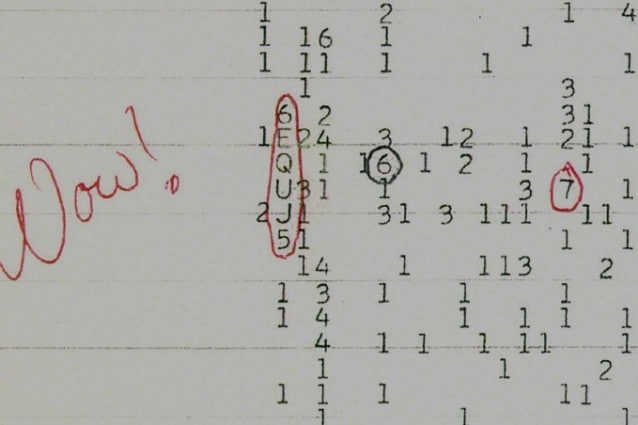 1 2 1 4
1 16 1 1
1 11 1 1 1
1 3
6 2 31
1E24 3 12 1 21 1
Q 1 16 1 2 1 1
U31 1 3 7 1
2J1 31 3 111 11
51 1 1
14 1 113 2
1 3 1 1 1
1 4 1 1 1 1
4 1 1 1 11 1
1 1 2
1 1 1 11
1 1 1
Wow!